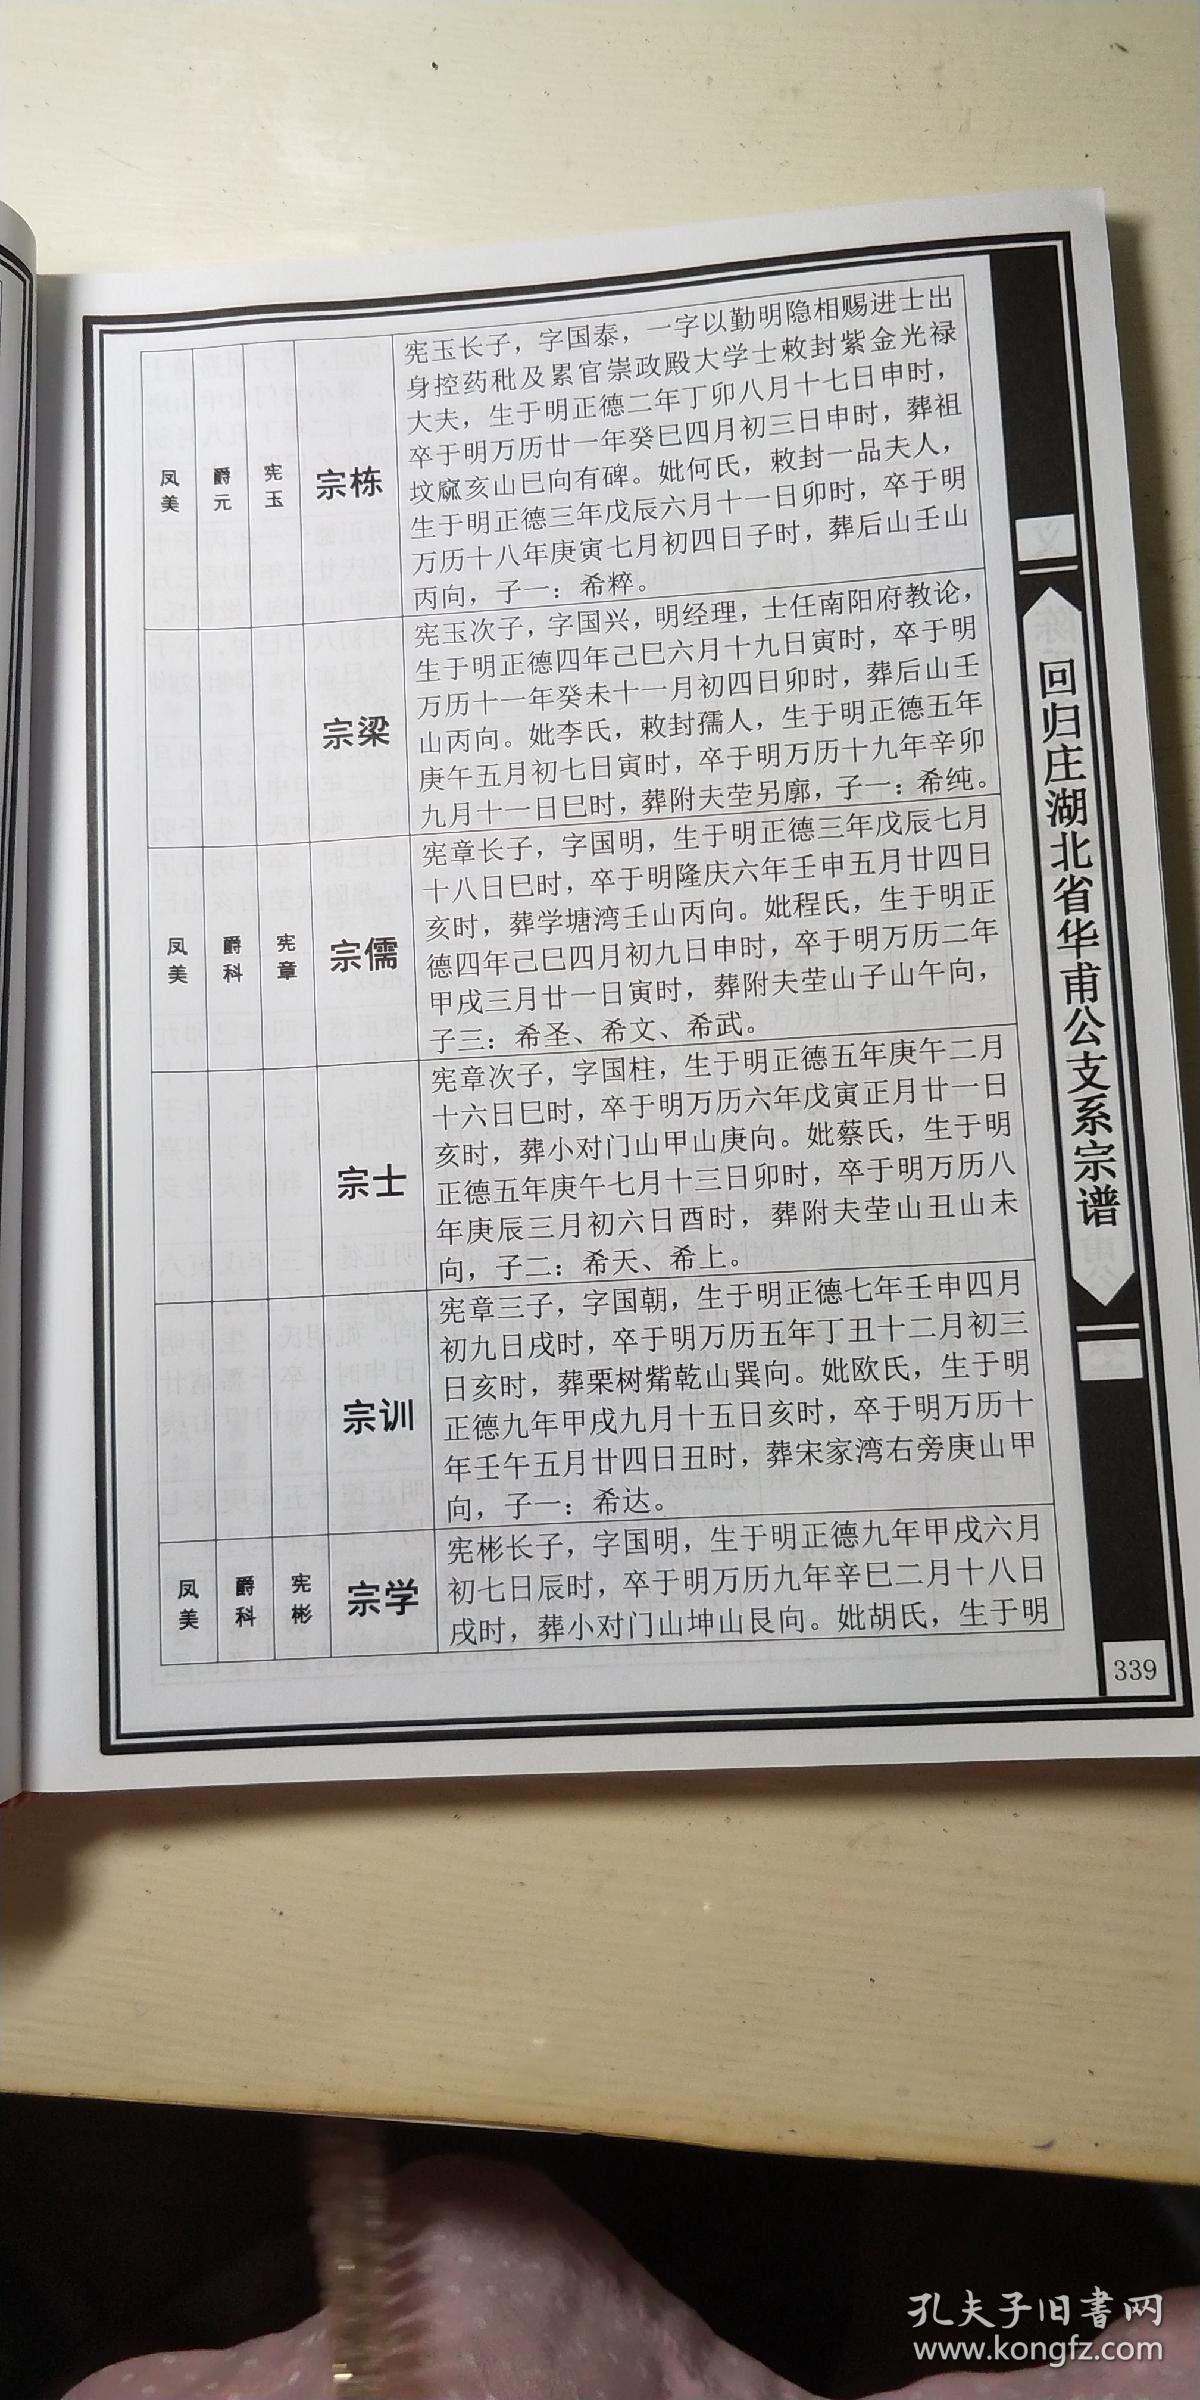 凤美
爵元
宪玉
宗栋
宪玉长子，字国泰，一字以勤明隐相赐进士出
身控药秕及累官崇政殿大学士敕封紫金光禄
大夫，生于明正德二年丁卯八月十七日申时，
卒于明万历廿一年癸巳四月初三日申时，葬祖
坟窳亥山巳向有碑。妣何氏，敕封一品夫人，
生于明正德三年戊辰六月十一日卯时，卒于明
万历十八年庚寅七月初四日子时，葬后山壬山
丙向，子一：希粹。
宗梁
宪玉次子，字国兴，明经理，士任南阳府教论，
生于明正德四年己巳六月十九日寅时，卒于明
万历十一年癸未十一月初四日卯时，葬后山壬
山丙向。妣李氏，敕封孺人，生于明正德五年
庚午五月初七日寅时，卒于明万历十九年辛卯
九月十一日巳时，葬附夫茔另廓，子一：希纯。
凤美
爵科
宪章
宗儒
宪章长子，字国明，生于明正德三年戊辰七月
十八日巳时，卒于明隆庆六年壬申五月廿四日
亥时，葬学塘湾壬山丙向。妣程氏，生于明正
德四年己巳四月初九日申时，卒于明万历二年
甲戌三月廿一日寅时，葬附夫茔山子山午向，
子三：希圣、希文、希武。
宗士
宪章次子，字国柱，生于明正德五年庚午二月
十六日巳时，卒于明万历六年戊寅正月廿一日
亥时，葬小对门山甲山庚向。妣蔡氏，生于明
正德五年庚午七月十三日卯时，卒于明万历八
年庚辰三月初六日酉时，葬附夫茔山丑山未
向，子二：希天、希上。
宗训
宪章三子，字国朝，生于明正德七年壬申四月
初九日戌时，卒于明万历五年丁丑十二月初三
日亥时，葬栗树觜乾山巽向。妣欧氏，生于明
正德九年甲戌九月十五日亥时，卒于明万历十
年壬午五月廿四日丑时，葬宋家湾右旁庚山甲
向，子一：希达。
凤美
爵科
宪彬
宗学
宪彬长子，字国明，生于明正德九年甲戌六月
初七日辰时，卒于明万历九年辛巳二月十八日
戌时，葬小对门山坤山艮向。妣胡氏，生于明
回归庄湖北省华甫公支系宗谱
339
孔夫子旧书网
www.kongfz.com